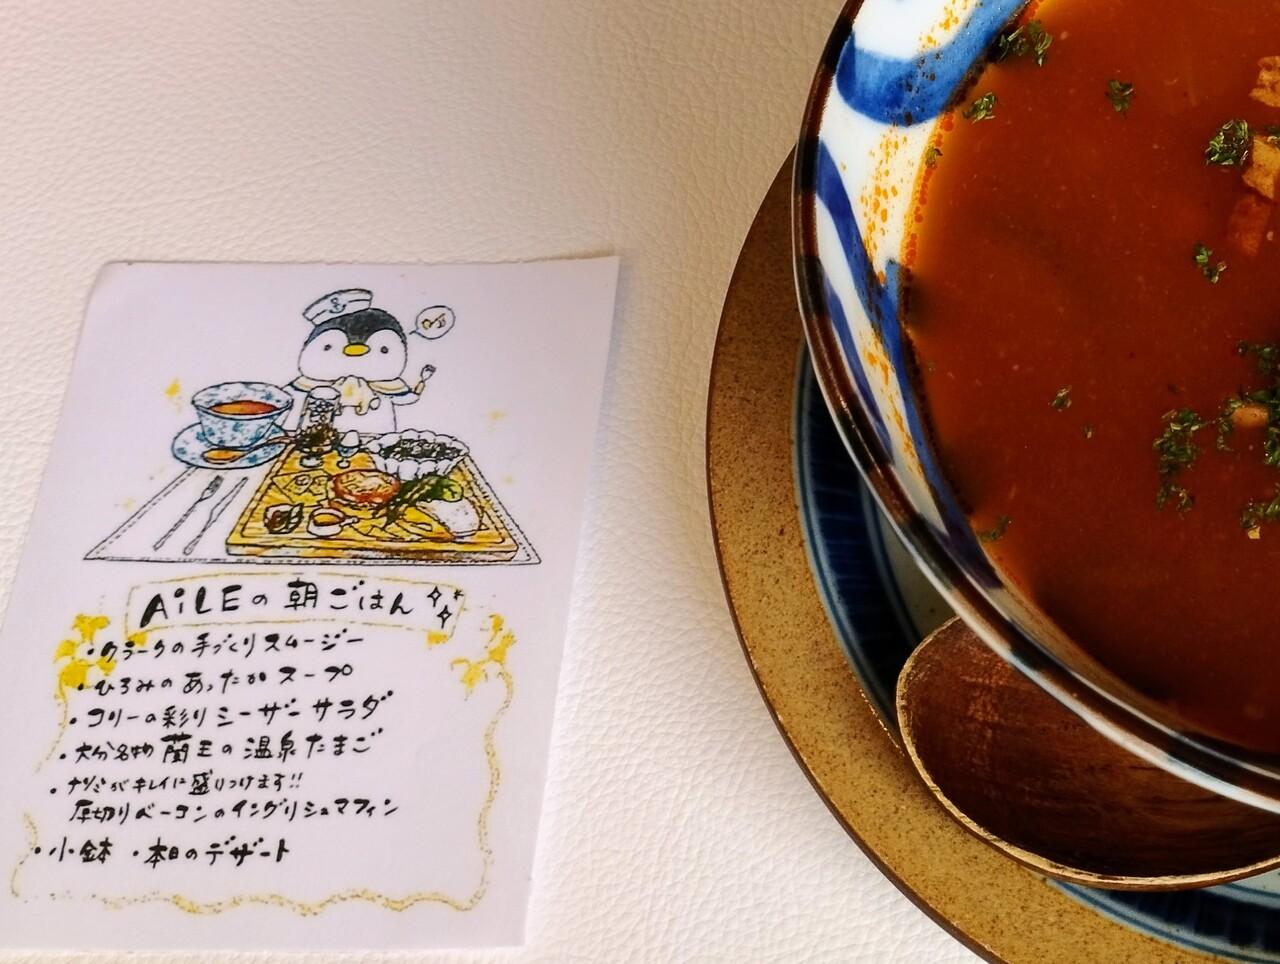 AiLEの朝ごはん
・クラークの手づくりスムージー
・ひろみのあったかスープ
・コリーの彩りシーザーサラダ
・大分名物 蘭王の温泉たまご
・ナツミがキレイに盛りつけます!!
厚切りベーコンのイングリシュマフィン
・小鉢 ・本日のデザート